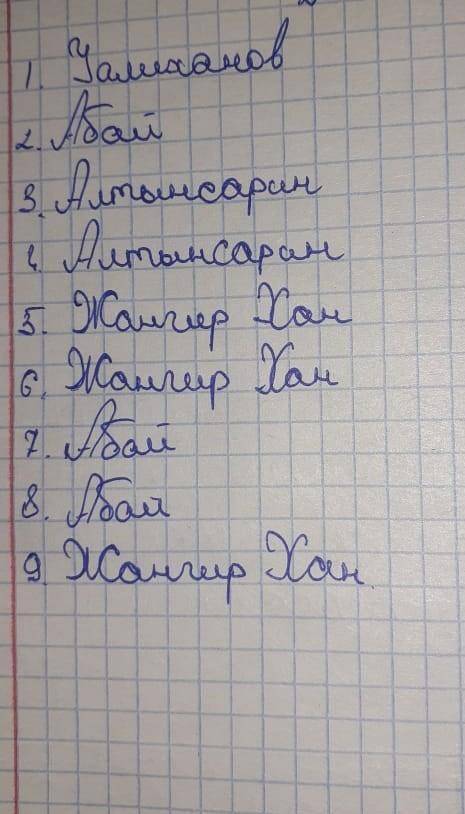 1. Уалиханов
2. Абай
3. Алтынсарин
4. Алтынсарин
5. Жангир Хан
6. Жангир Хан
7. Абай
8. Абай
9. Жангир Хан.